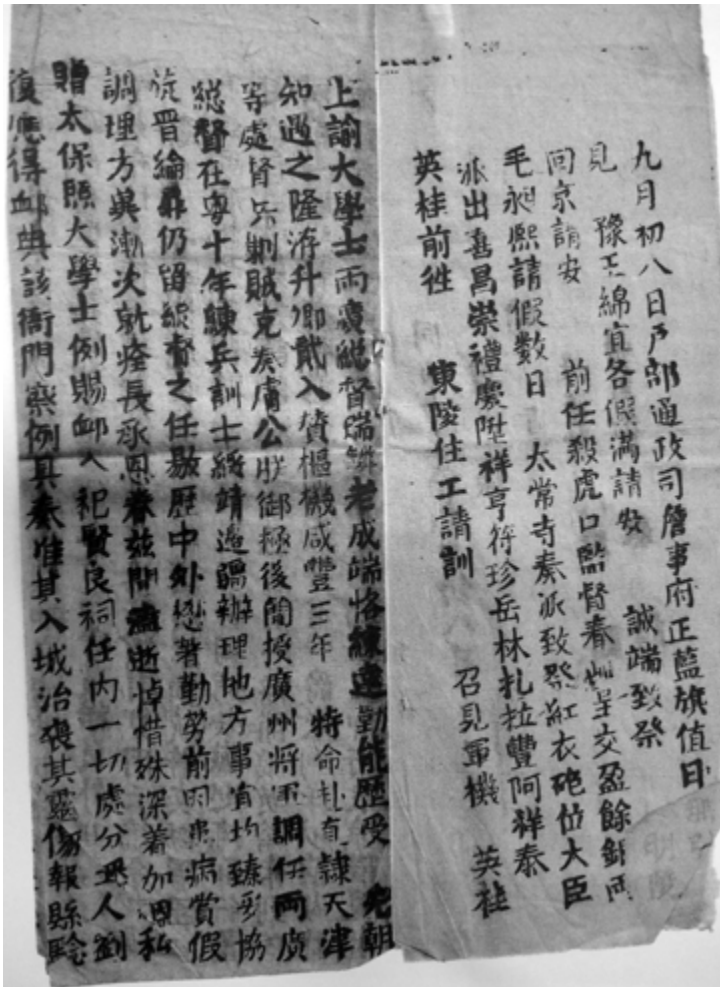 九月初八日戶部通政司詹事府正藍旗值日
見 豫王綿宜各假滿請安 誠端致祭
回京請安 前任殺虎口監督春 呈交盈餘銀兩
毛昶熙請假數日 太常寺奏派致祭紅衣砲位大臣
派出喜昌崇禮慶陞祥亨符珍岳林扎拉豐阿祥泰
英桂前往 東陵住工請訓 召見軍機 英桂
上諭大學士兩廣總督瑞麟老成端恪練達勤能歷受 先朝
知遇之隆洊升卿貳入贊樞機咸豐三年 特命赴直隸天津
等處督兵剿賊克奏膚公朕御極後簡授廣州將軍調任兩廣
總督在粵十年練兵訓士綏靖邊疆辦理地方事宜均臻妥協
旋晉綸扉仍留總督之任敭歷中外懋著勤勞前因患病賞假
調理方冀漸次就痊長承恩眷茲聞溘逝悼惜殊深著加恩
贈太保照大學士例賜卹入祀賢良祠任內一切處分
復應得卹典該衙門察例具奏准其入城治喪其靈